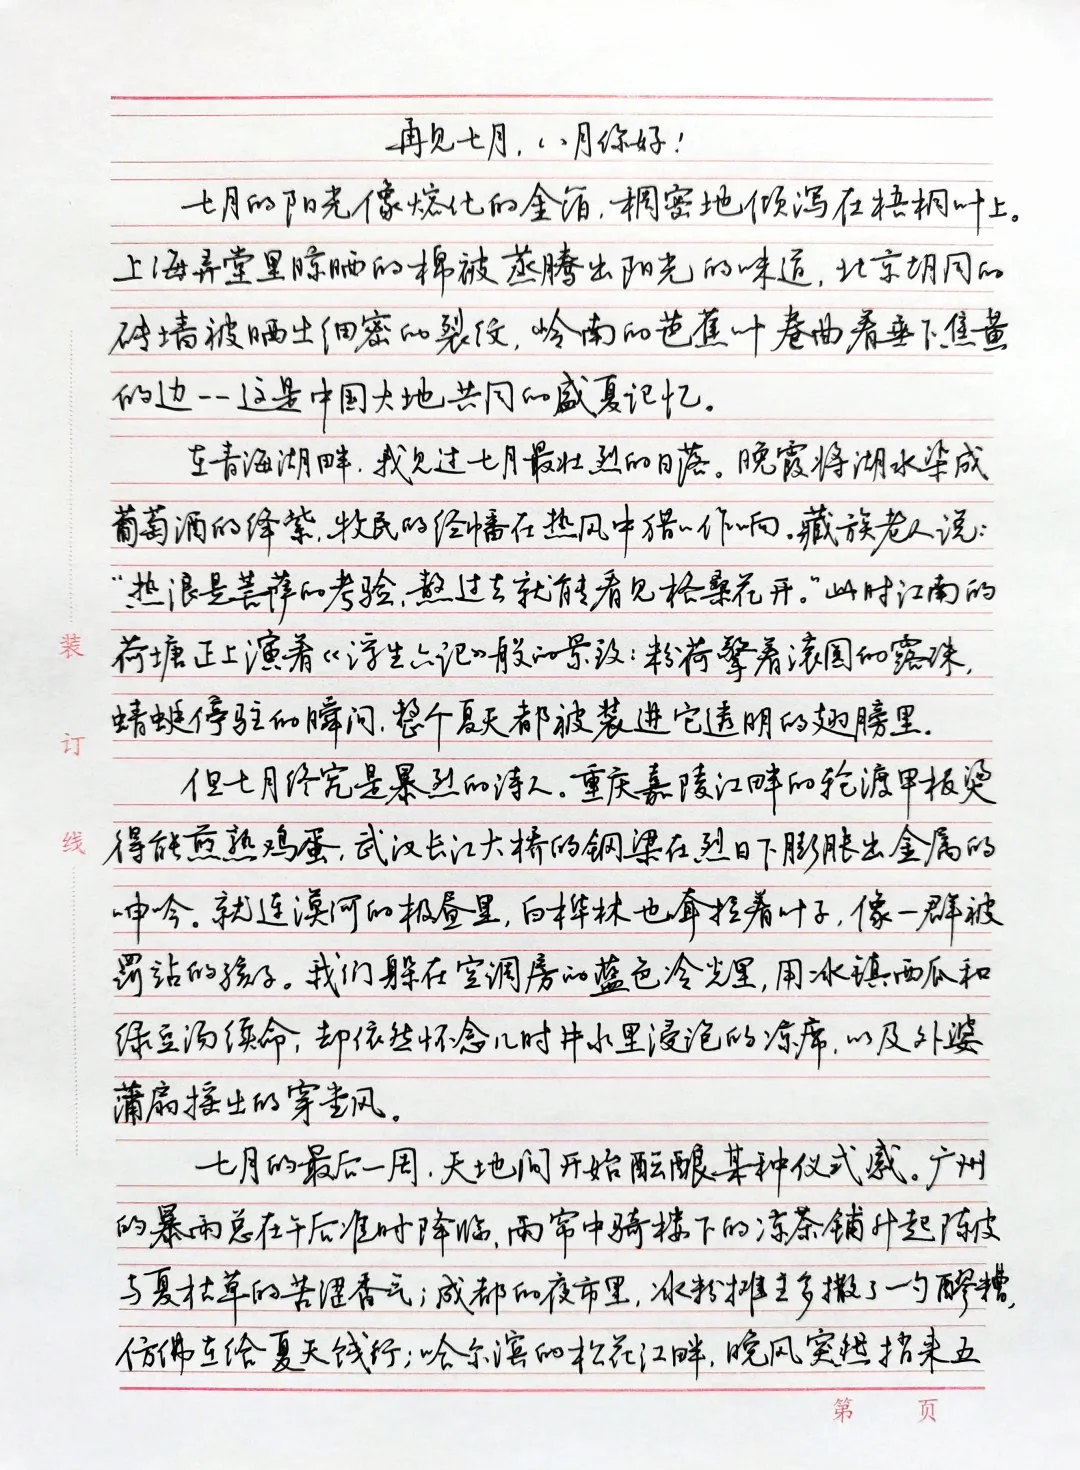 再见七月，八月你好！
七月的阳光像熔化的金箔，稠密地倾泻在梧桐叶上。
上海弄堂里晾晒的棉被蒸腾出阳光的味道，北京胡同的
砖墙被晒出细密的裂纹，岭南的芭蕉叶卷曲着垂下焦黄
的边--这是中国大地共同的盛夏记忆。
在青海湖畔，我见过七月最壮烈的日落。晚霞将湖水染成
葡萄酒的绛紫，牧民的经幡在热风中猎猎作响。藏族老人说：
“热浪是菩萨的考验，熬过去就能看见格桑花开。”此时江南的
荷塘正上演着《浮生六记》般的景致：粉荷擎着滚圆的露珠，
蜻蜓停驻的瞬间，整个夏天都被装进它透明的翅膀里。
但七月终究是暴烈的诗人。重庆嘉陵江畔的轮渡甲板烫
得能煎熟鸡蛋，武汉长江大桥的钢梁在烈日下膨胀出金属的
呻吟。就连漠河的极昼里，白桦林也耷拉着叶子，像一群被
罚站的孩子。我们躲在空调房的蓝色冷光里，用冰镇西瓜和
绿豆汤续命，却依然怀念儿时井水里浸泡的凉席，以及外婆
蒲扇摇出的穿堂风。
七月的最后一周，天地间开始酝酿某种仪式感。广州
的暴雨总在午后准时降临，雨帘中骑楼下的凉茶铺升起陈皮
与夏枯草的苦涩香气；成都的夜市里，冰粉摊主多撒了一勺醪糟，
仿佛在给夏天饯行；哈尔滨的松花江畔，晚风突然捎来五
装
订
线
第 页